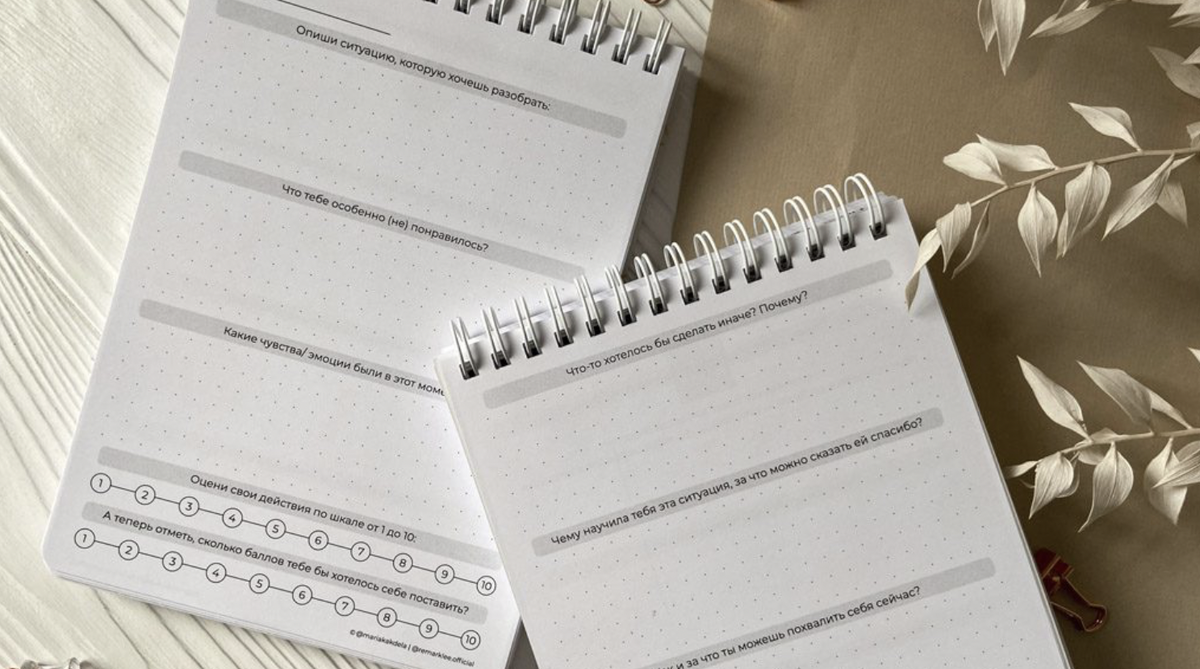 Опиши ситуацию, которую хочешь разобрать:
Что тебе особенно (не) понравилось?
Какие чувства/ эмоции были в этот
Оцени свои действия по шкале от 1 до 10:
1 2 3 4 5 6 7 8 9 10
А теперь отметь, сколько баллов тебе бы хотелось себе поставить?
1 2 3 4 5 6 7 8 9 10
© @mariakakdela | @remarklee.official
Что-то хотелось бы сделать иначе? Почему?
Чему научила тебя эта ситуация, за что можно сказать ей спасибо?
и за что ты можешь похвалить себя сейчас?